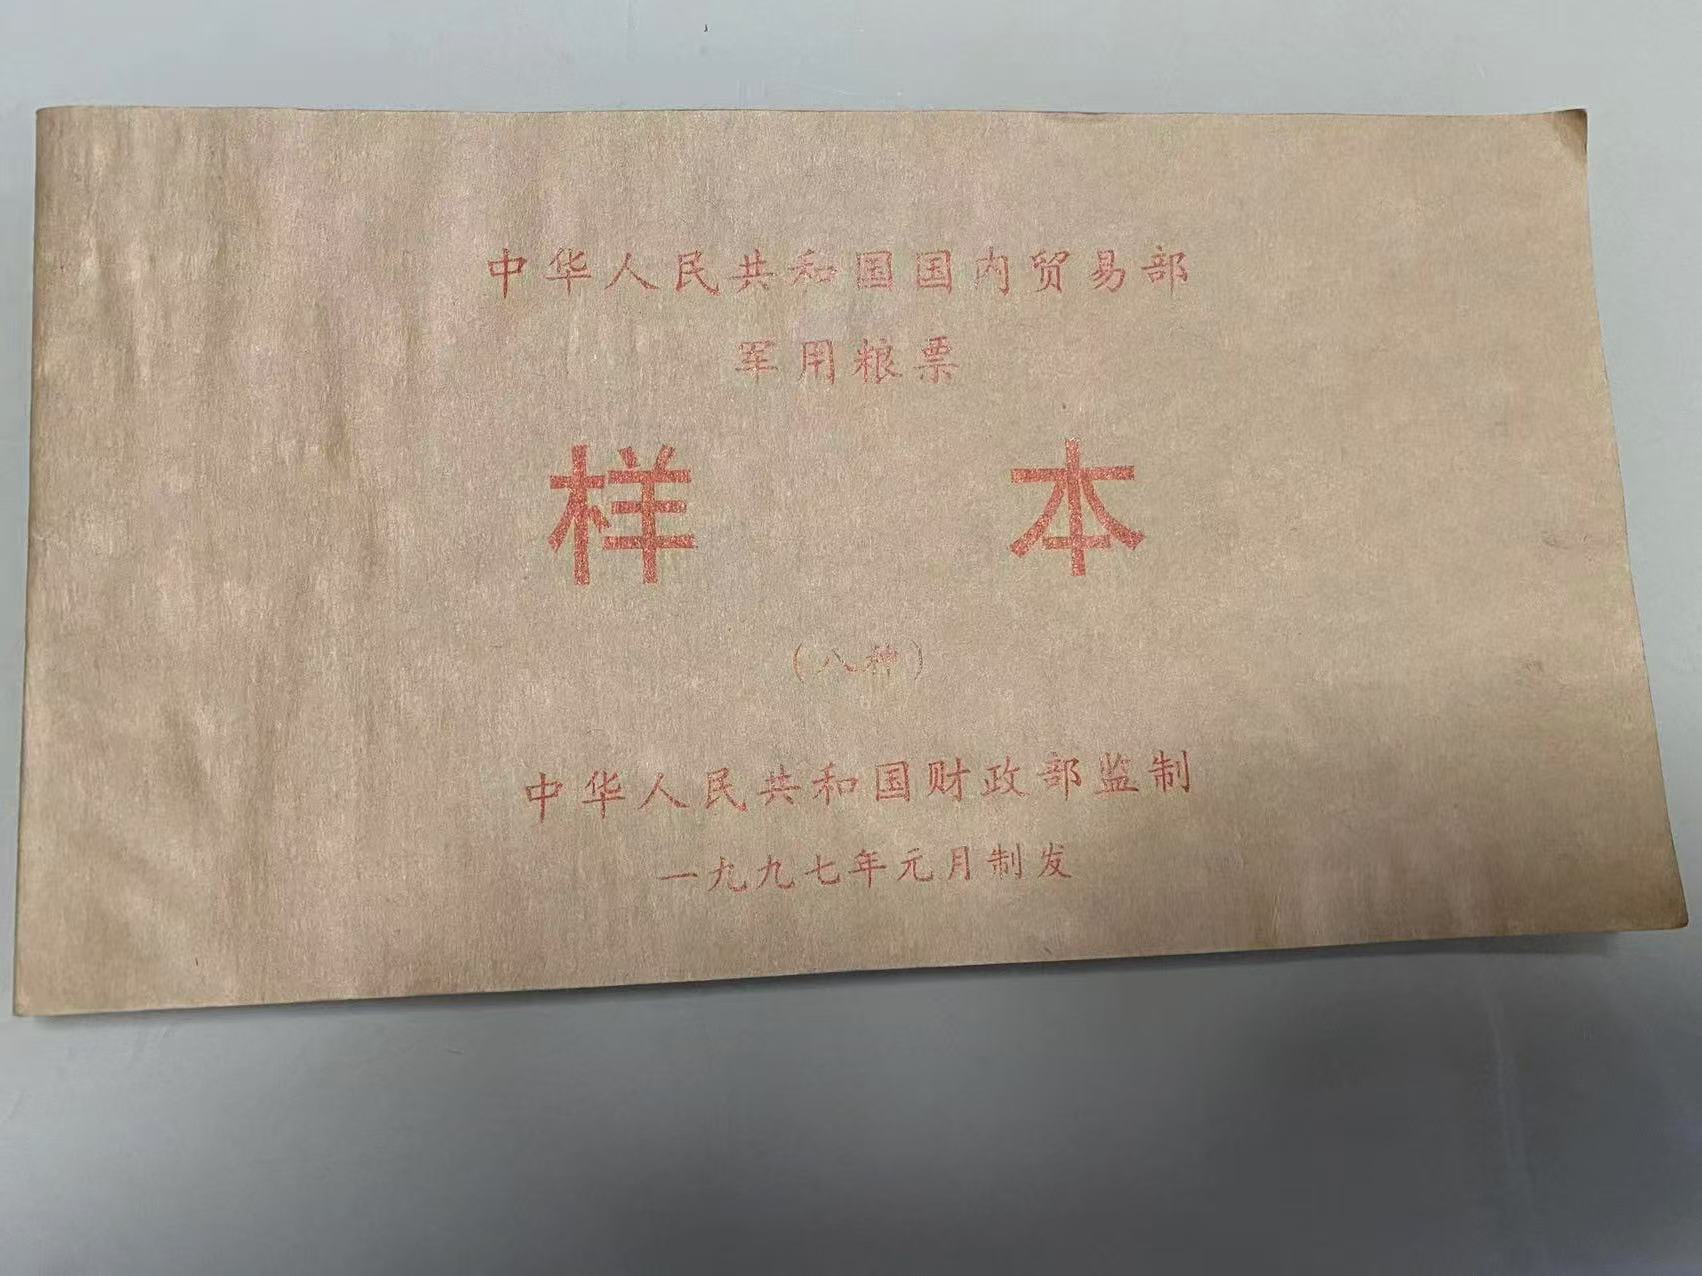 中华人民共和国国内贸易部
军用粮票
样本
（八种）
中华人民共和国财政部监制
一九九七年元月制发